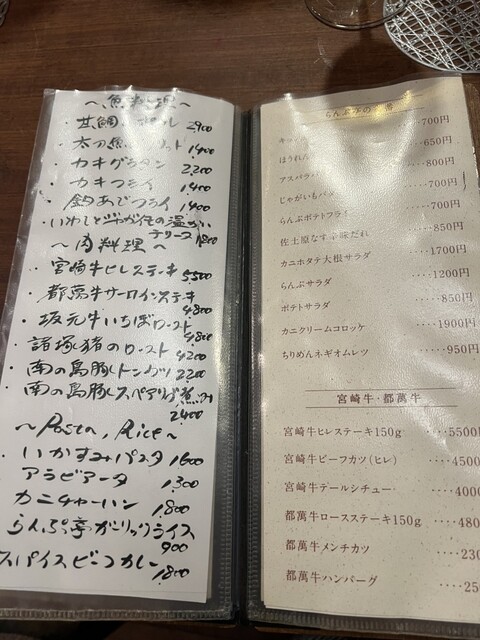 〜魚料理〜
・甘鯛 2900
・太刀魚 リット 1400
・カキグラタン 2200
・カキフライ 1400
・釣あじフライ 1400
・いわしとじゃが芋の温かいテリーヌ 1800
〜肉料理〜
・宮崎牛ヒレステーキ 5500
・都萬牛サーロインステーキ 4800
・坂元牛いちぼロースト 4800
・諸塚猪のロースト 4200
・南の島豚トンカツ 2200
・南の島豚スペアリブ煮込み 2400
〜Pasta, Rice〜
・いかすみパスタ 1600
アラビアータ 1300
カニチャーハン 1800
らんぷ亭ガーリックライス 900
スパイスビーフカレー 1800
らんぷ亭の
700円
ほうれん 650円
アスパラ 800円
じゃがいもバ 700円
らんぷポテトフライ 700円
佐土原なす辛味だれ ‥850円
カニホタテ大根サラダ ‥1700円
らんぷサラダ ‥‥1200円
ポテトサラダ ‥‥850円
カニクリームコロッケ ‥‥1900円
ちりめんネギオムレツ ‥‥950円
宮崎牛・都萬牛
宮崎牛ヒレステーキ150g ‥‥5500円
宮崎牛ビーフカツ(ヒレ) ‥‥4500
宮崎牛テールシチュー ‥‥4000
都萬牛ロースステーキ150g ‥‥480
都萬牛メンチカツ ‥‥230
都萬牛ハンバーグ ‥‥25